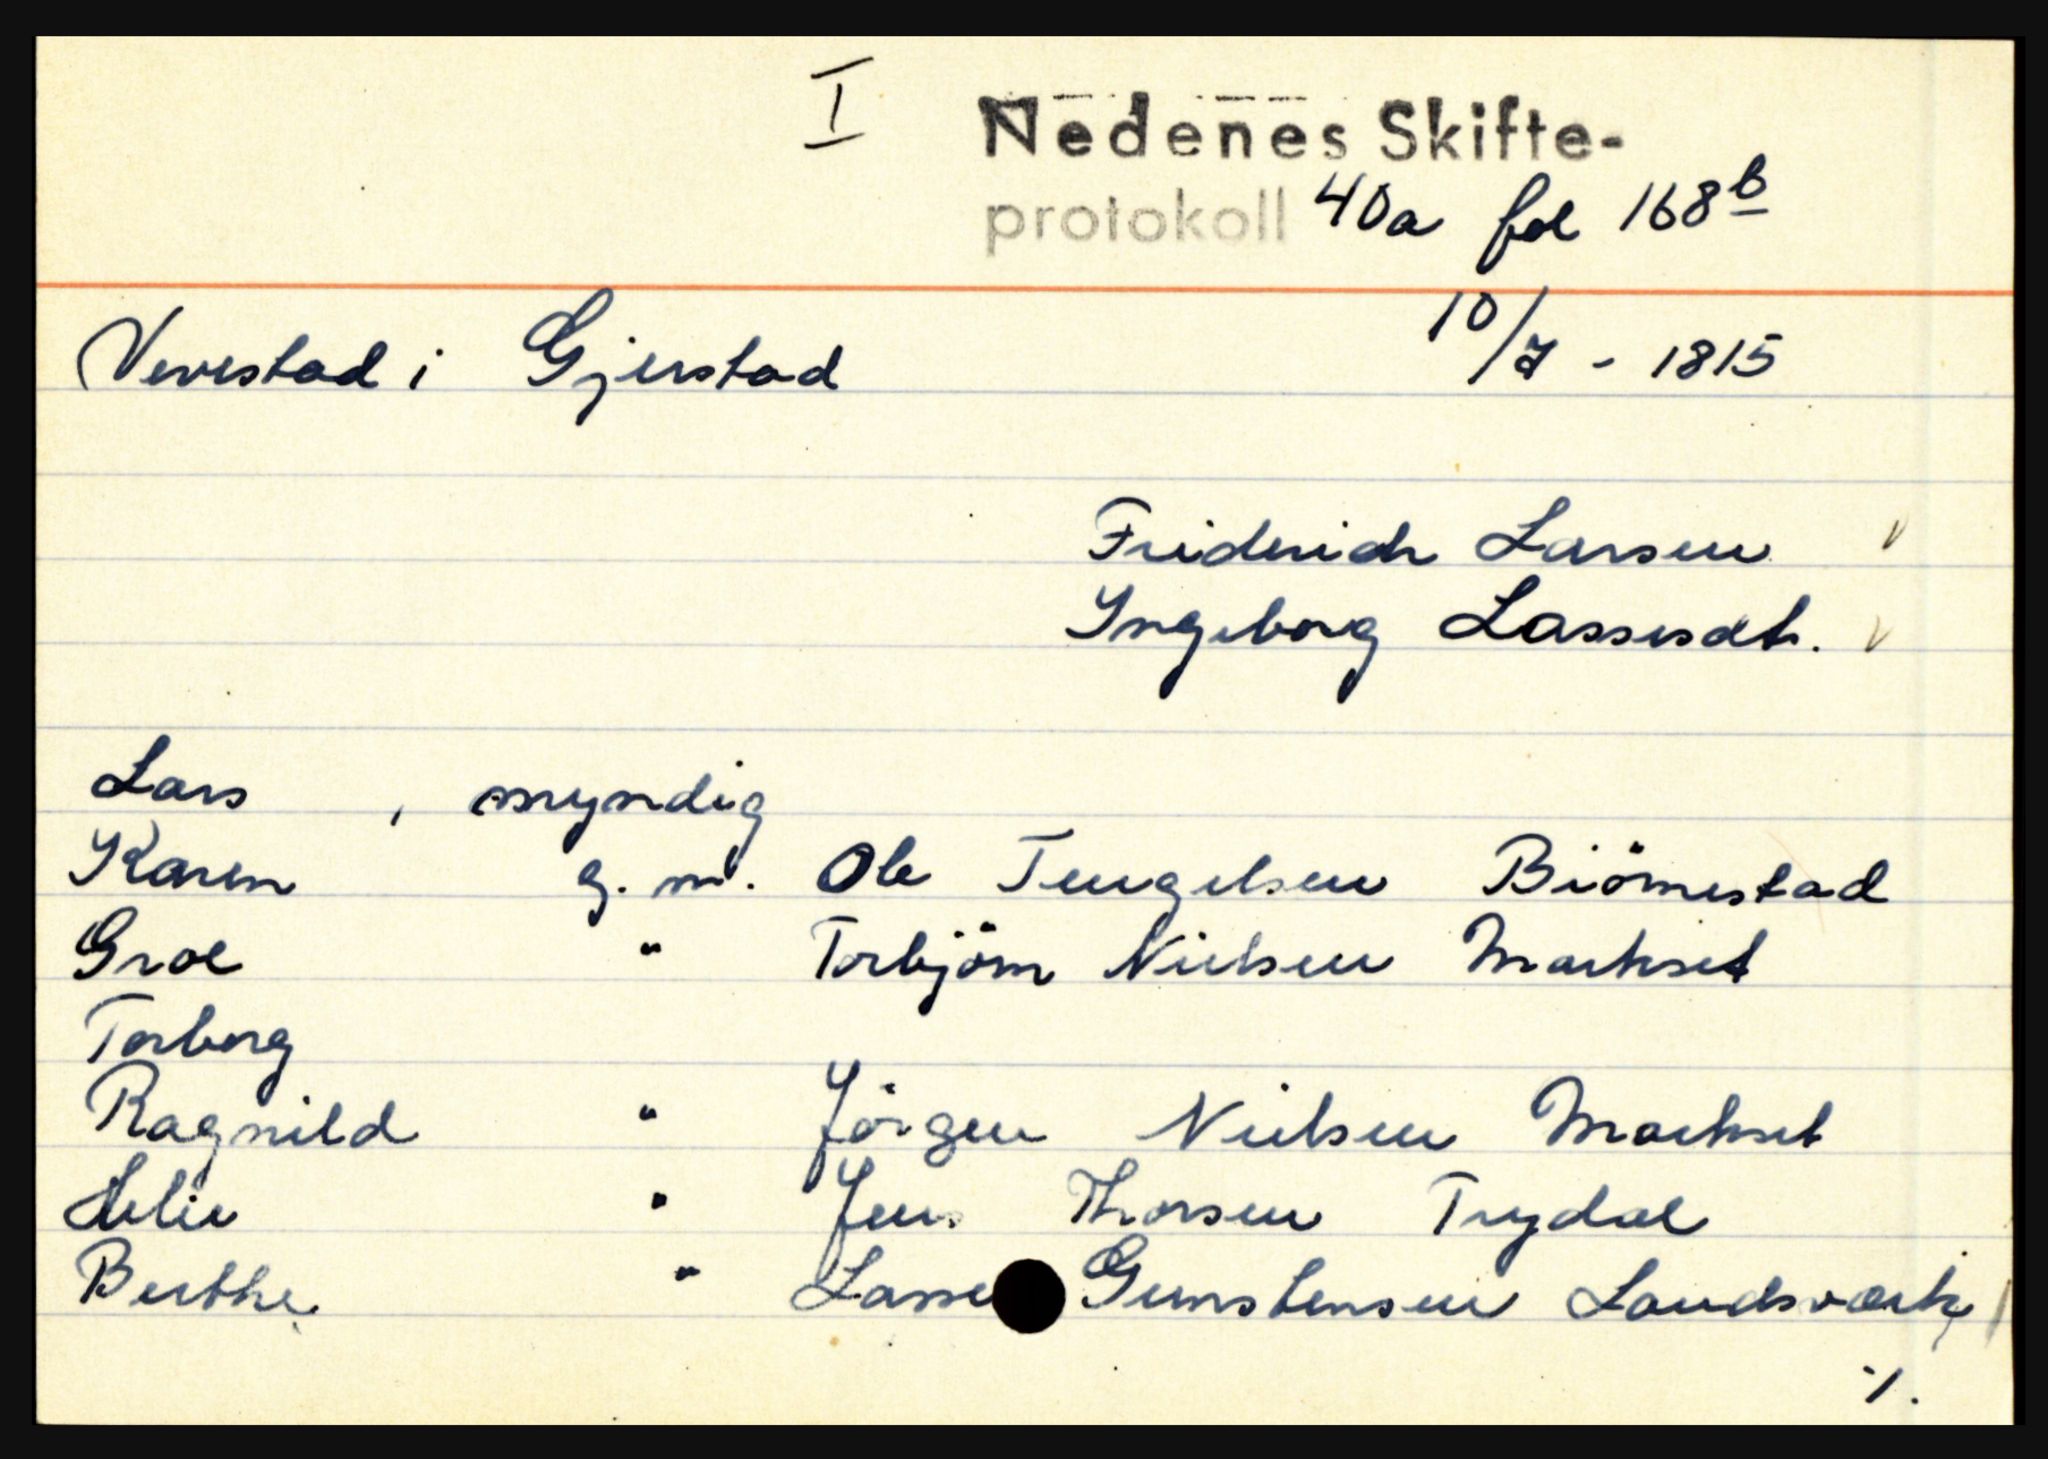 I
Nedenes Skifte-
protokoll 40a fol 168b
Vevestad i Gjerstad 10/7 - 1815
Friderich Larsen
Ingeborg Lassesdt.
Lars , myndig
Karen g. m. Ole Tengelsen Biörnestad
Groe " Torbjörn Nielsen Markset
Torborg
Ragnild " Jörgen Nielsen Markset
Helie " Jens Thorsen Trydal
Berthe " Lasse Gunstensen Landsværk
./.